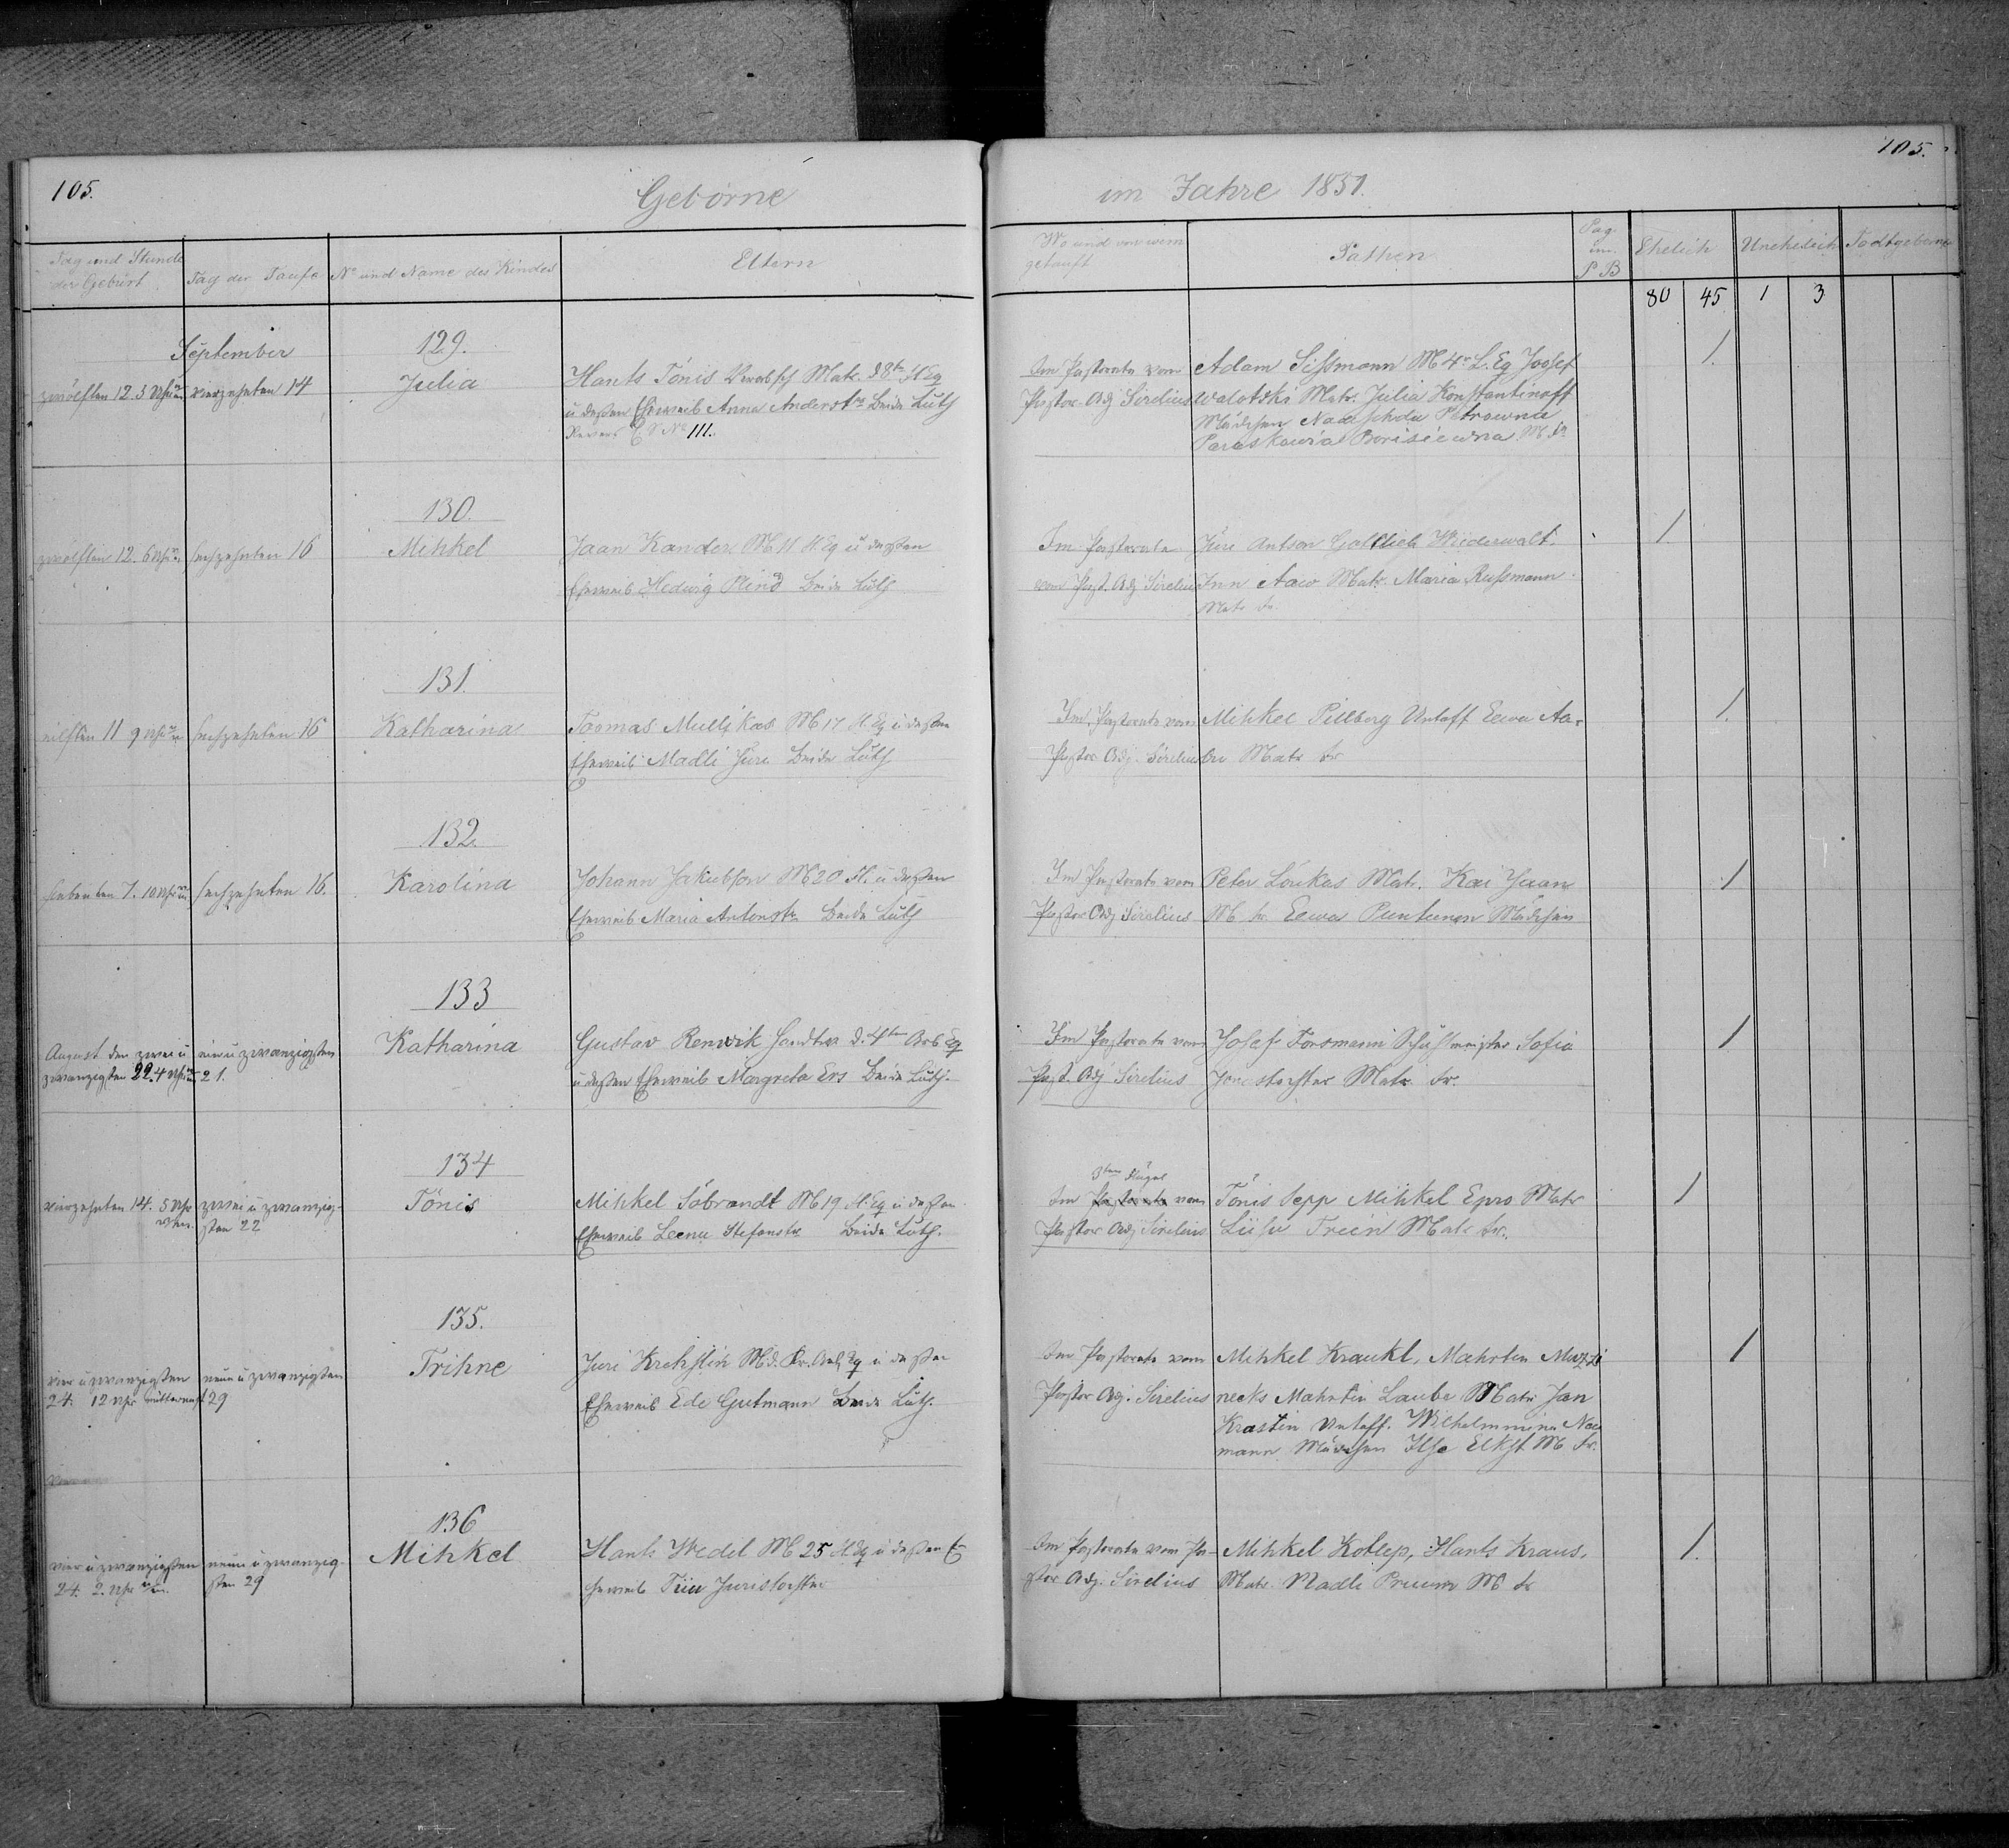 105.
Geborne
im Jahre 1851.
105.
Tag und Stunde
der Geburt
Tag der Taufe
No und Name des Kindes
Eltern
Wo und von wem
getauft
Pathen
Pag.
im
P B
Ehelich
Unehelich
Todtgeborne
80 45 1 3
September
129.
zwölften 12. 5 Uhr
vierzehnten 14
Julia
Hants Tönis Matr. d 8ten Fl Eq
u deßen Eheweib Anna Anderstr Beide Luth
Revers No 111.
Im Pastorate vom
Pastor-Adj Sirelius
Adam Sissmann M 4r L. Eq Joosef
walotski Matr. Julia Konstantinoff
Mädchen Nadeschda Petrowna
Paraskawia Borisiewna M fr
1.
130.
zwölften 12. 6 Uhr
sechzehnten 16
Mihkel
Jaan Kander M 11 Fl. Eq u deßen
Eheweib Hedwig Plind Beide Luth
Im Pastorate
vom Past. Adj Sirelius
Jüri Antson Gottlieb Wiederwalt.
Inn Aaw Matr. Maria Russmann
Matr fr
1.
131.
eilften 11 9 Uhr
sechzehnten 16
Katharina
Toomas Mullikas M 17 Fl. Eq u deßen
Eheweib Madli Jüri Beide Luth
Im Pastorate vom
Pastor Adj. Sirelius
Mihkel Pillberg Untoff Eewa Aa-
Matr fr
1.
132.
siebenten 7. 10 Uhr
sechzehnten 16.
Karolina
Johann Jakubson M 20 Fl. u deßen
Eheweib Maria Antonstr. Beide Luth
Im Pastorate vom
Pastor Adj Sirelius
Peter Loukas Matr. Kai Jaan
M fr. Eewa Puntunen Mädchen
1
133
August den zwei u
zwanzigsten 22. 4 Uhr
ein u zwanzigsten
21.
Katharina
Gustav Renwik d. 4ten Arb. Eq
u deßen Eheweib Margreta Ers Beide Luth.
Im Pastorate vom
Past. Adj Sirelius
Josef Forsmann Schulmeister Sofia
Jonastochter Matr. fr.
1
134
vierzehnten 14. 5 Uhr
zwei u zwanzig-
sten 22
Tönis
Mihkel Söbrandt M 19 Fl. Eq u deßen
Eheweib Leenu Stefanstr. Beide Luth.
3ten Flügel
Im Pastorate vom
Pastor Adj Sirelius
Tönis Sepp Mihkel Epro Matr
Liisu Treün Matr fr.
1
135.
vier u zwanzigsten
24. 12 Uhr Mitternacht
neun u zwanzigsten
29
Trihne
Juri Krehslin M d. Kr. Arb Eq u deßen
Eheweib Ede Gutmann Beide Luth.
Im Pastorate vom
Pastor Adj. Sirelius
Mihkel Kraukl, Mahrtin Muzzi
neeks Mahrtin Laube Matr Jan
Krastin Untoff. Wilhelmina Neu
mann Mädchen Ilse Elkst M fr.
1
136
vier u zwanzigsten
24. 2. Uhr
neun u zwanzig-
sten 29
Mihkel
Hants Wedel M 25 Fl. Eq u deßen E
heweib Tiiu Juristochter
Im Pastorate vom Pa-
stor Adj. Sirelius
Mihkel Kotlep, Hants Kraus.
Matr. Madli Pruum M fr
1.